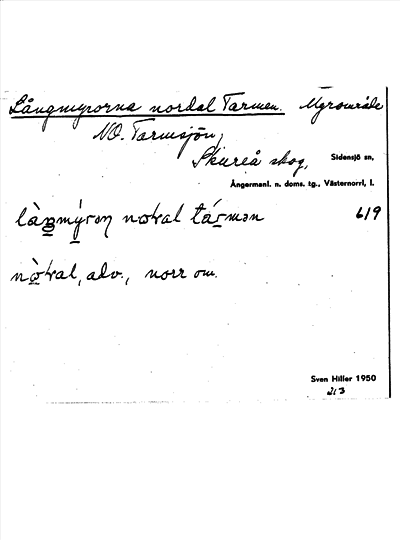 Långmyrorna nordal Tarmen. Myrområde
NO. Tarmsjön,
Skureå skog, Sidensjö sn,
Ångermanl. n. doms. tg., Västernorrl, l.
làŋmýroṇ nəɫal tármən 619
nòɫal, adv., norr om.
Sven Hiller 1950
213